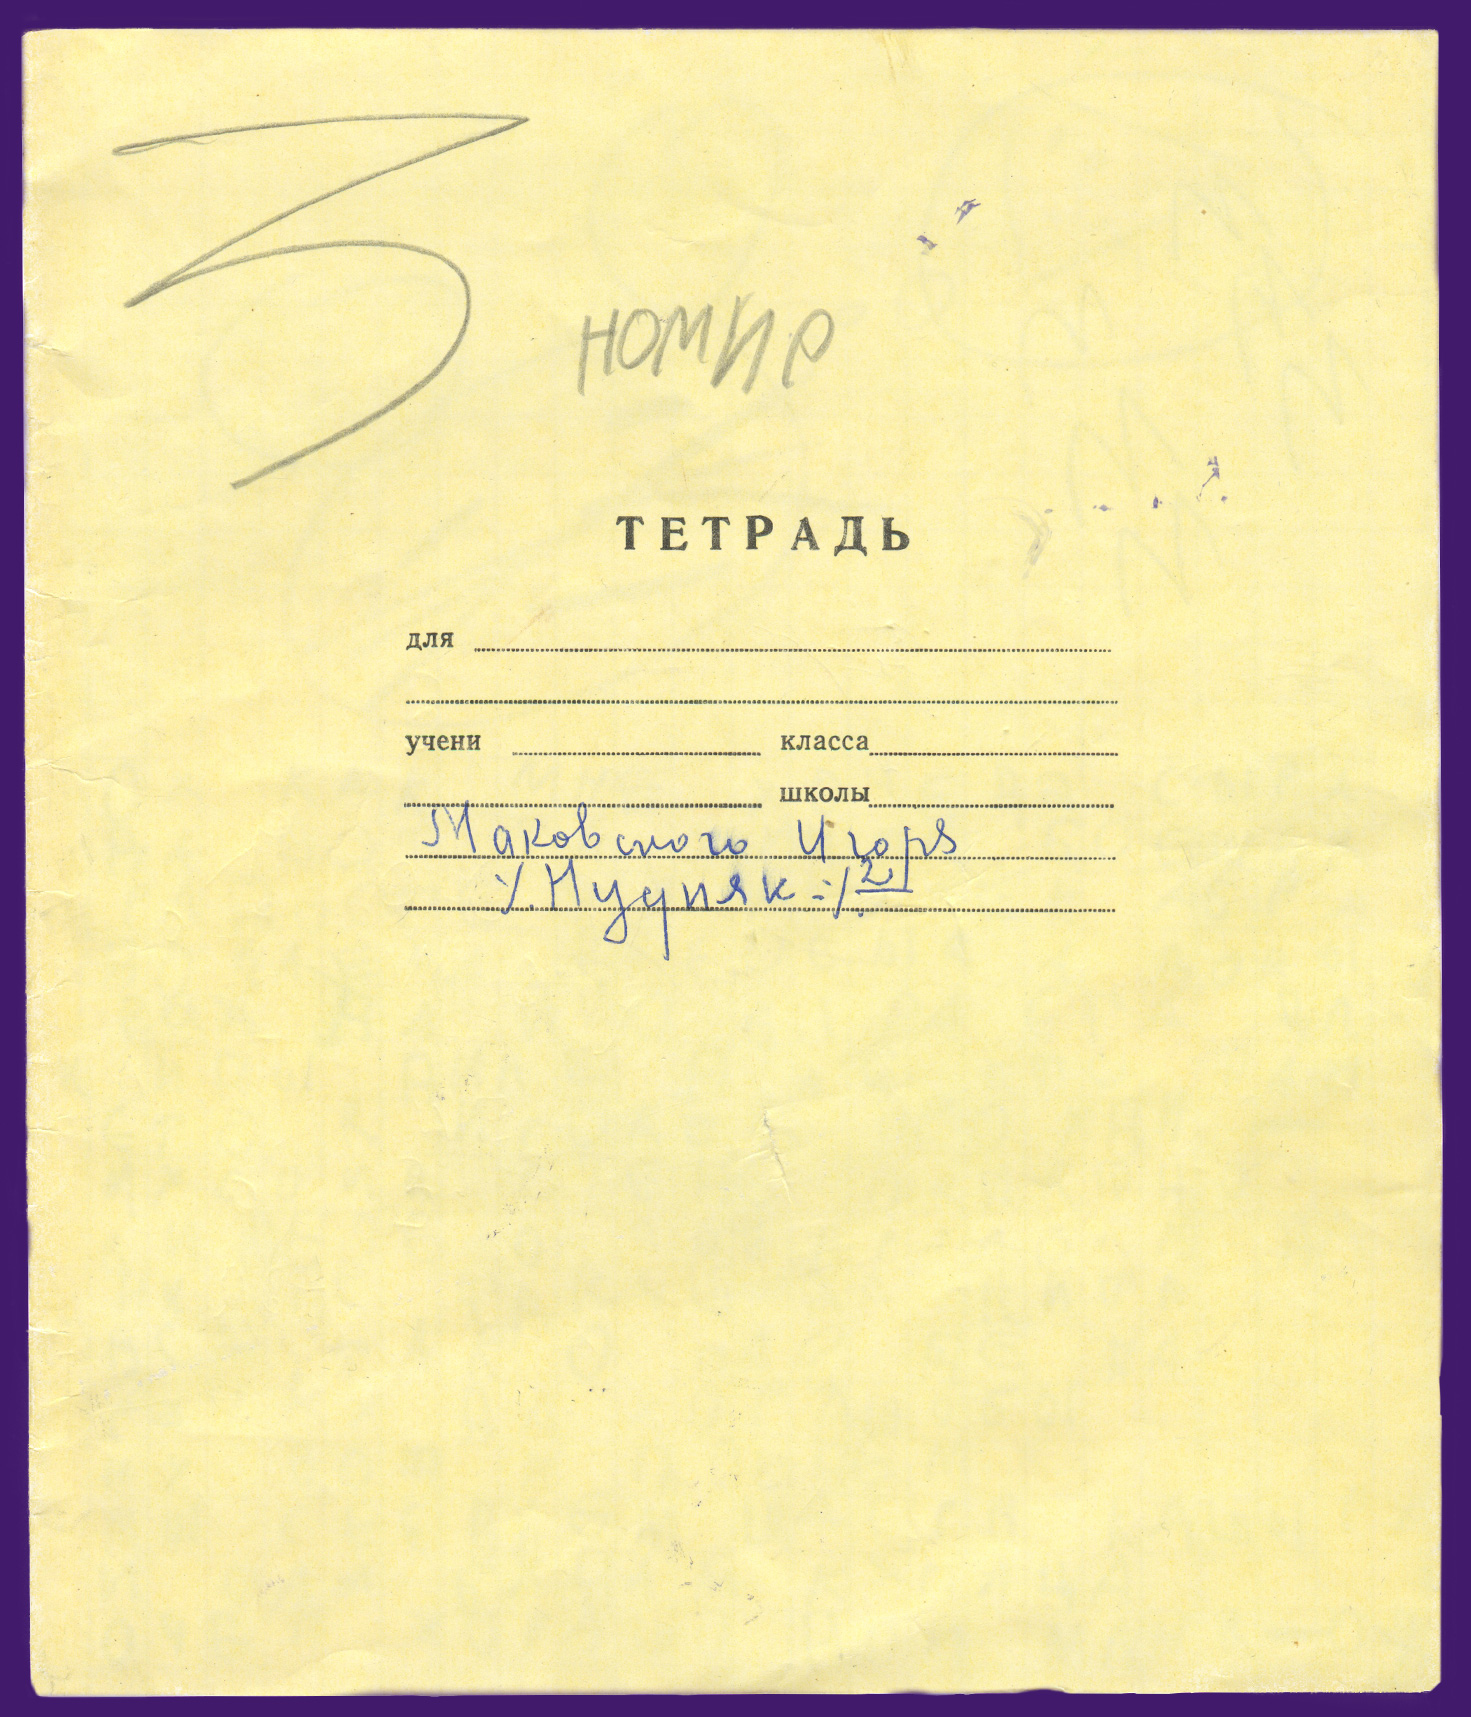 3
номир
ТЕТРАДЬ
для
учени класса
школы
Маковского Игоря